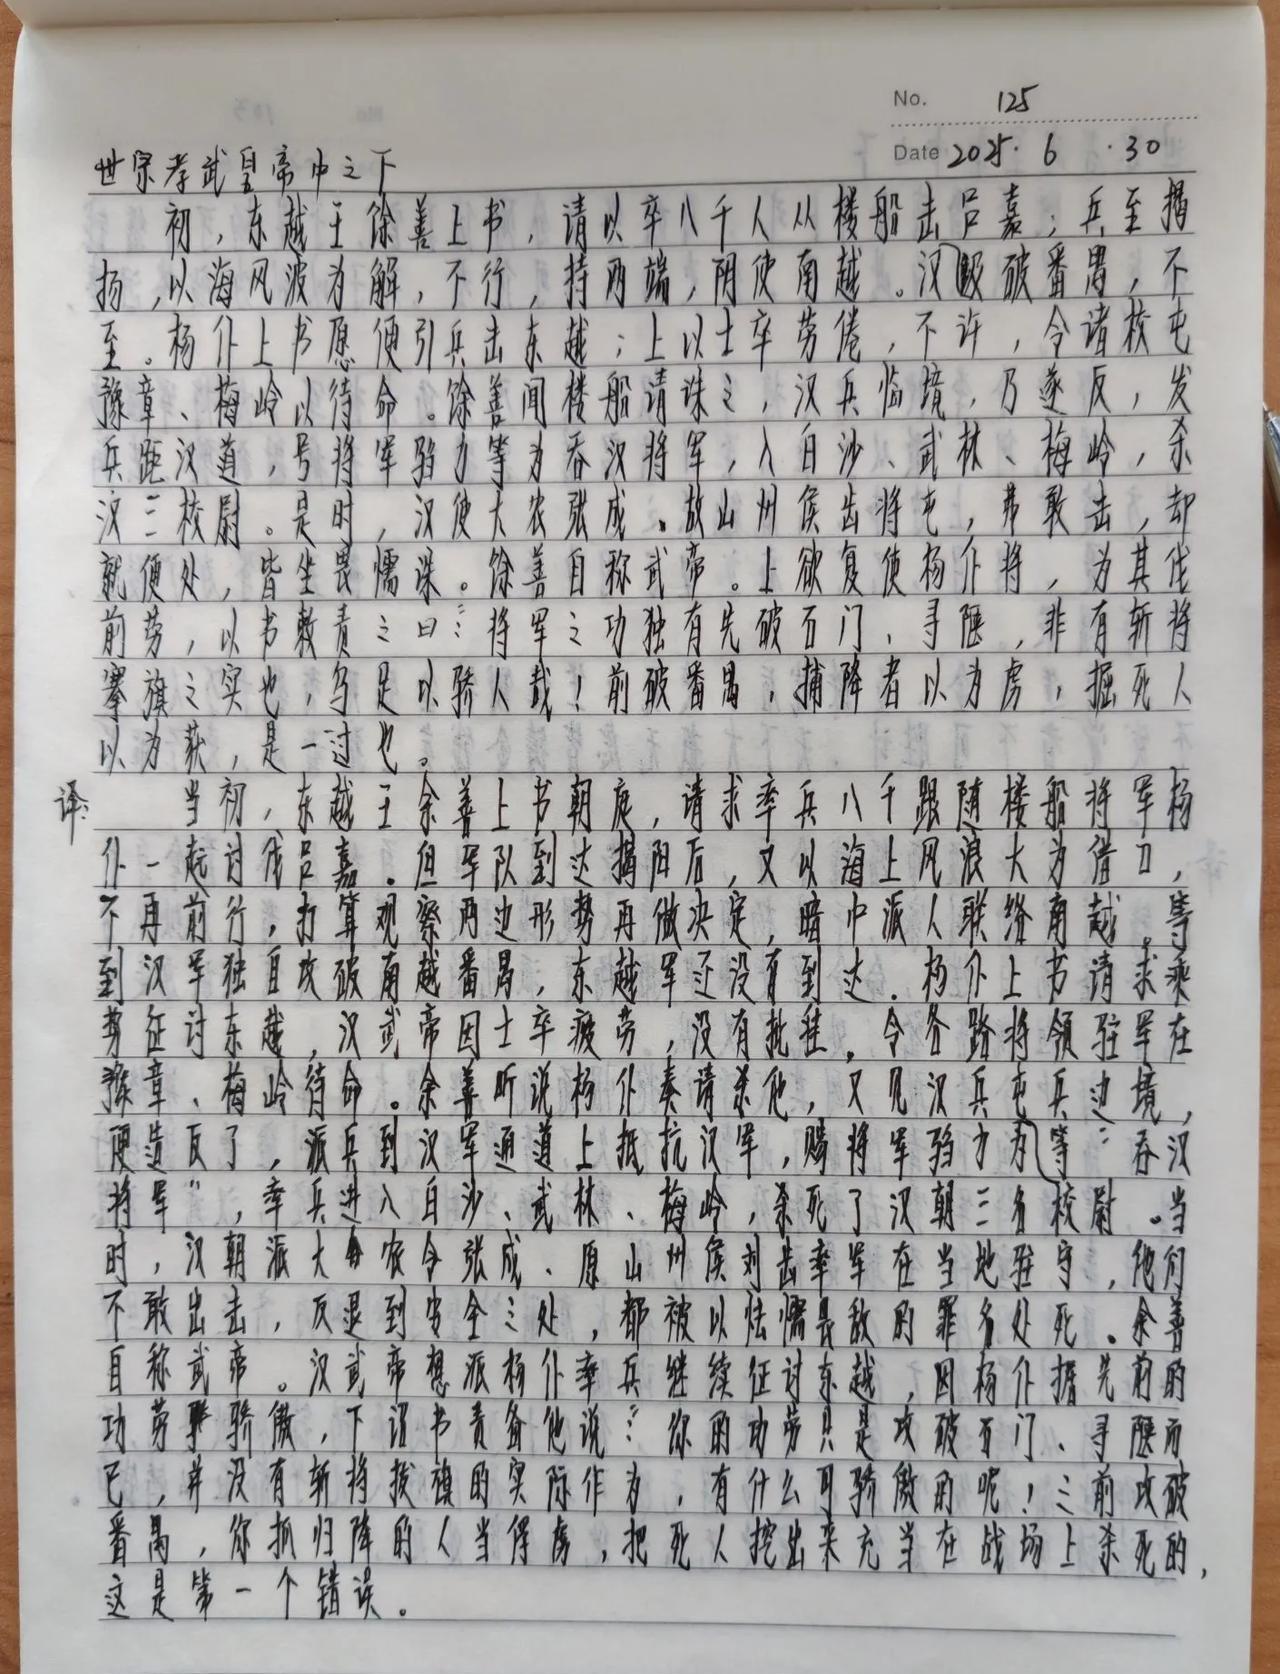 No. 125
Date 2025. 6 .30
世宗孝武皇帝中之下
初，东越王馀善上书，请以卒八千人从楼船击吕嘉；兵至揭
扬，以海风波为解，不行，持两端，阴使南越。汉破番禺，不
至。杨仆上书愿便引兵击东越；上以士卒劳倦，不许，令诸校屯
豫章、梅岭以待命。馀善闻楼船请诛之，汉兵临境，乃遂反，发
兵距汉道，号将军驺力等为吞汉将军，入白沙、武林、梅岭，杀
汉三校尉。是时，汉使大农张成、故山州侯齿将屯，弗敢击，却
就便处，皆坐畏懦诛。馀善自称武帝。上欲复使杨仆将，为其伐
前劳，以书敕责之曰：“将军之功独有先破石门、寻陿，非有斩将
搴旗之实也，乌足以骄人哉！前破番禺，捕降者以为虏，掘死人
以为获，是一过也。
译：当初，东越王余善上书朝庭，请求率兵八千跟随楼船将军杨
仆一起讨伐吕嘉。但军队到达揭阳后，又以海上风浪大为借口，
不再前行，打算观察两边形势再做决定，暗中派人联络南越。等
到汉军独自攻破南越番禺，东越军还没有到达。杨仆上书请求乘
势征讨东越，汉武帝因士卒疲劳，没有批准，令各路将领驻军在
豫章、梅岭待命。余善听说杨仆奏请杀他，又见汉兵屯兵边境，
便造反了，派兵到汉军通道上抵抗汉军，赐将军驺力为等“吞汉
将军”，率兵进入白沙、武林、梅岭，杀死了汉朝三名校尉。当
时，汉朝派大农令张成、原山州侯刘齿率军在当地驻守，他们
不敢出击，反退到安全之处，都被以怯懦畏敌的罪名处死。余善
自称武帝。汉武帝想派杨仆率兵继续征讨东越，因杨仆据先前的
功劳骄傲，下诏书责备他说：“你的功劳只是攻破石门、寻陿而
已，并没有斩将拔旗的实际作为，有什么可骄傲的呢！之前攻破
番禺，你抓归降的人当俘虏，把死人挖出来充当在战场上杀死的，
这是第一个错误。